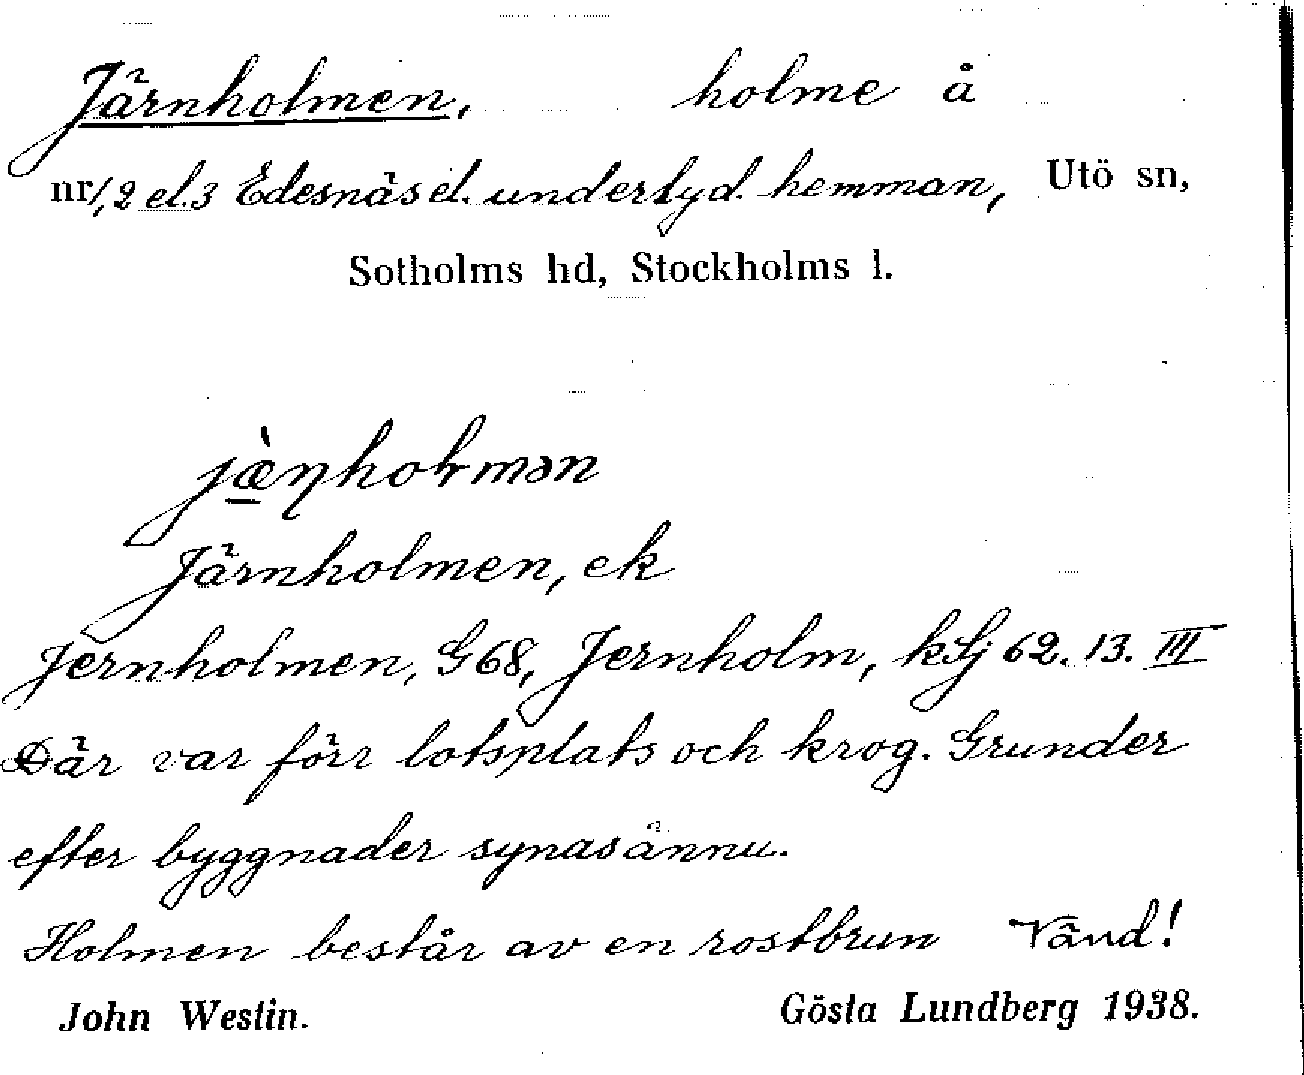 Järnholmen, holme å
nr 1, 2 el. 3 Edesnäs el. underlyd. hemman, Utö sn,
Sotholms hd, Stockholms l.
jæ̀ɳholmən
Järnholmen, ek
Jernholmen, G 68, Jernholm, kSj 62. 13. III
Där var förr lotsplats och krog. Grunder
efter byggnader synas ännu.
Holmen består av en rostbrun Vänd!
John Westin. Gösta Lundberg 1938.